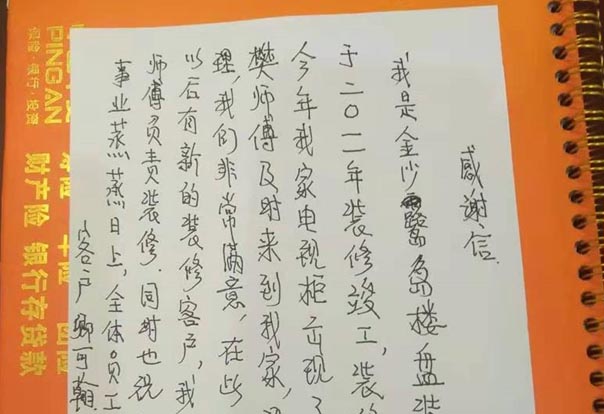 感谢信
我是金沙鹭岛楼盘装
于二〇一一年装修竣工,装修
今年我家电视柜出现了
樊师傅及时来到我家,
理,我们非常满意,在此
以后有新的装修客户,我
师傅负责装修.同时也祝
事业蒸蒸日上,全体员工
客户
可翰
PING AN
保险·银行·投资
财产险 银行存贷款